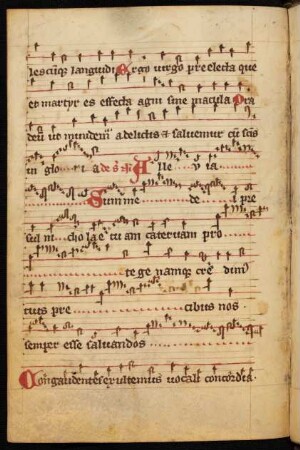 lescūq languidi Ergo virgo preelecta que
et martyr es effecta agni sine macula Ora
deū ut mundem̄ a delictis et saluemur cū scīs
in glo ri a de s. Alle v ia
Summe de i pre
sul ni cho lae tu am cateruam pro
tege namq cre dim
tuis pre cibus nos
semper esse saluandos
Congaudentes exultemus vocali concordia